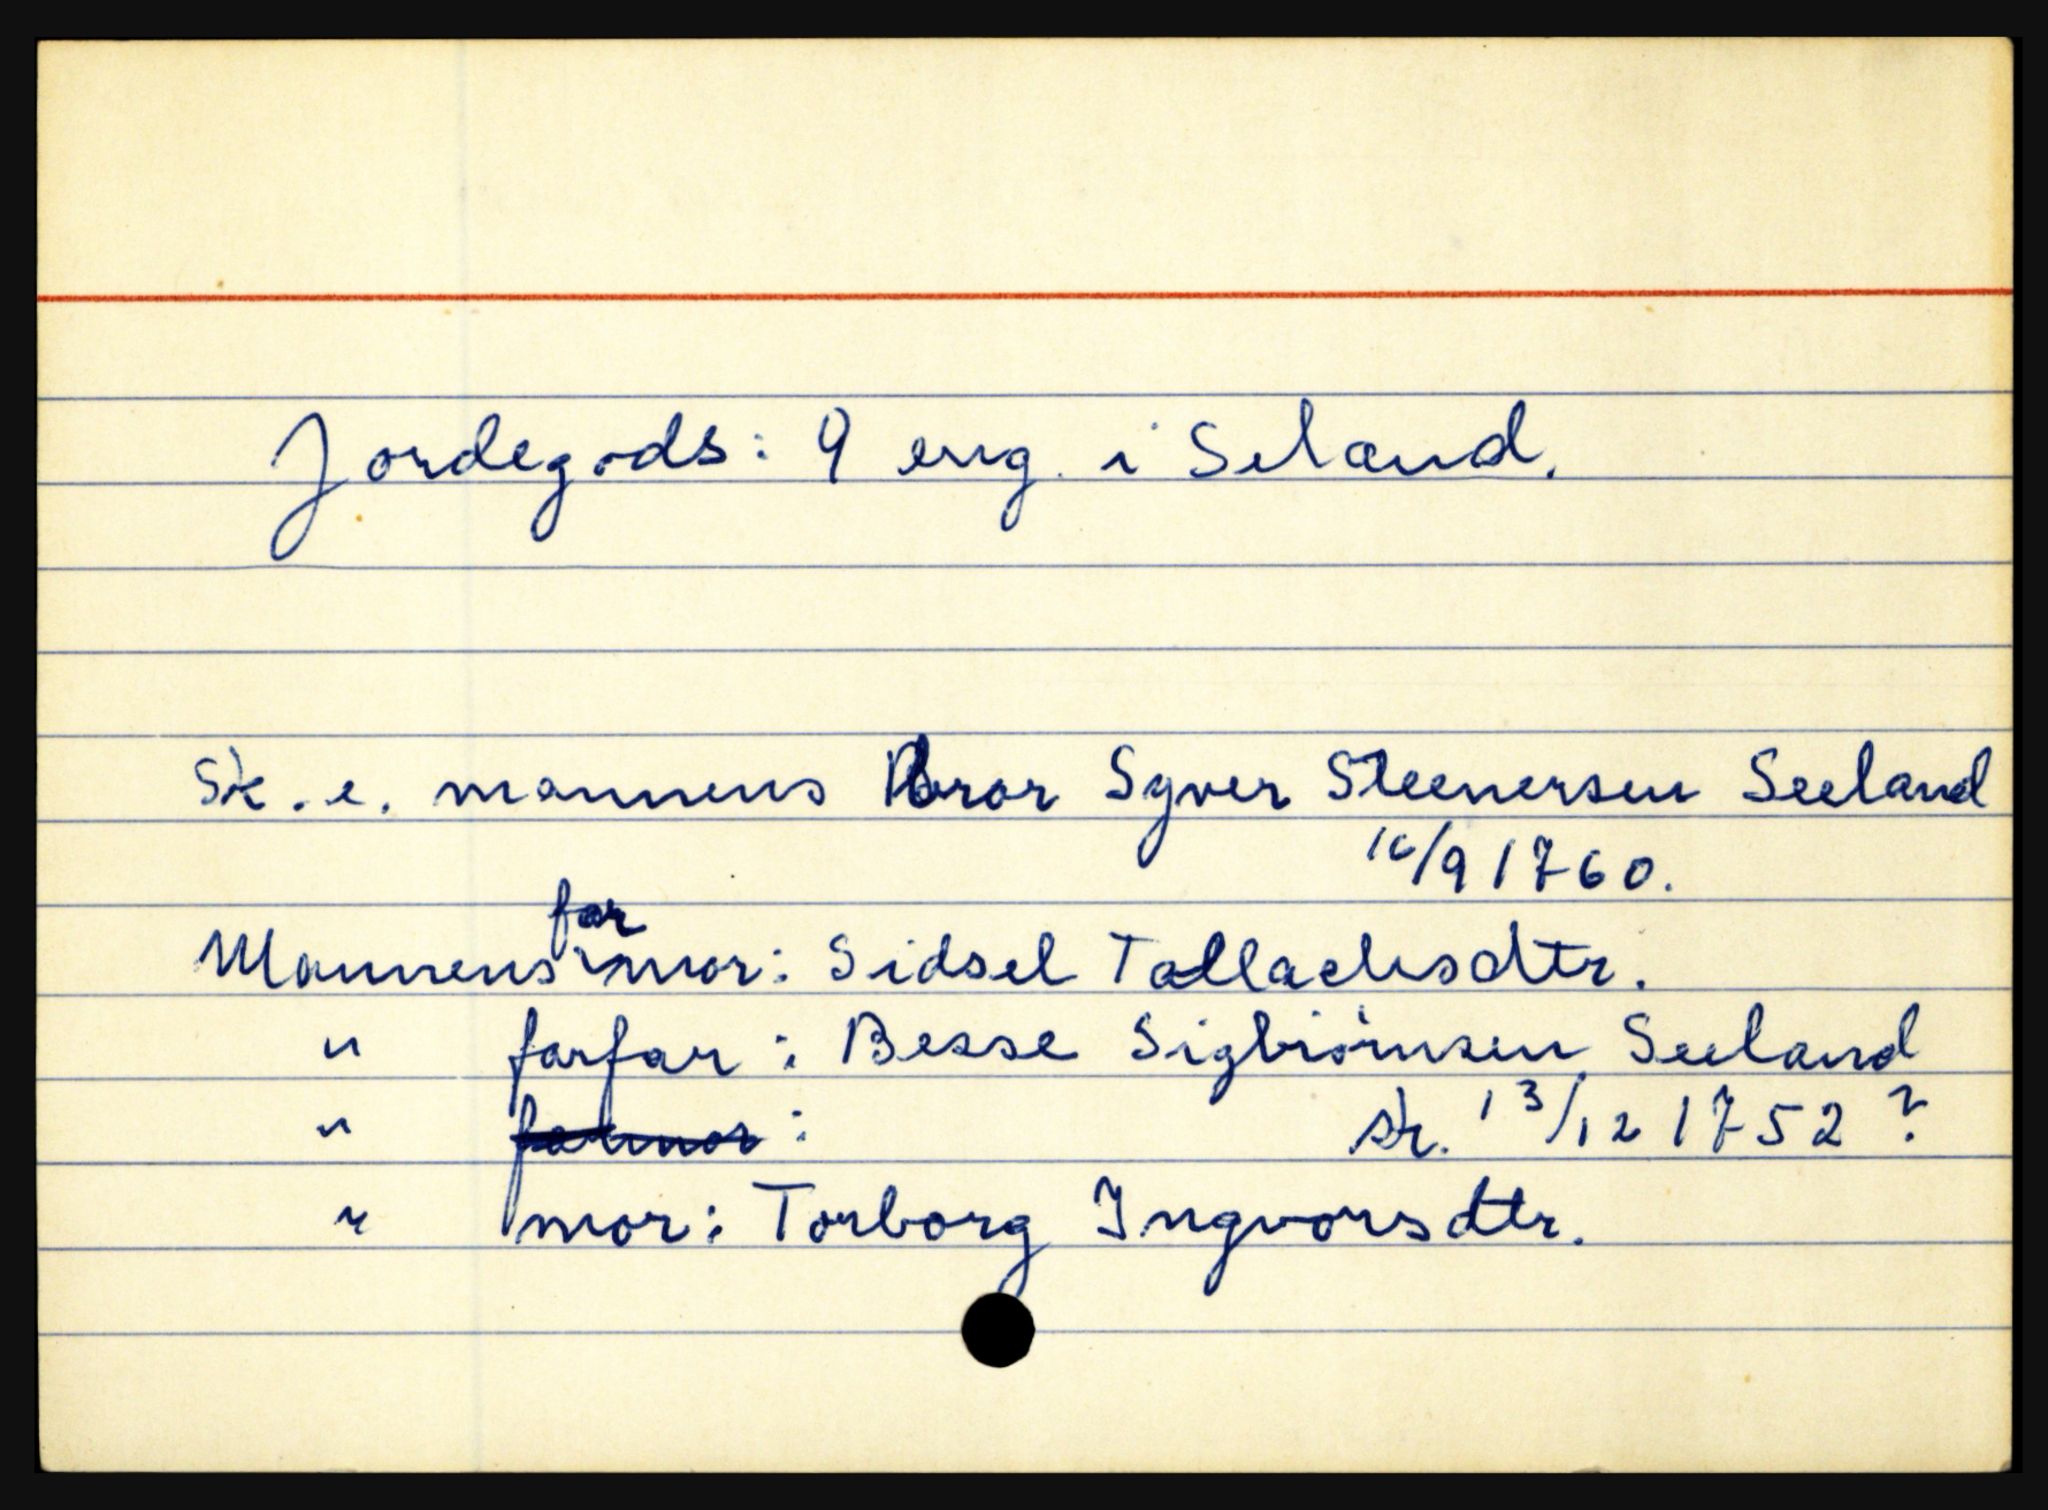 Jordegods: 9 eng. i Seland.
Sk. e. mannens bror Syver Steenersen Seeland
16/9 1760.
far
Mannens mor: Sidsel Tallachsdtr.
" farfar: Besse Sigbiørnsen Seeland
" farmor: sk. 13/12 1752?
" mor: Torborg Ingvorsdtr.